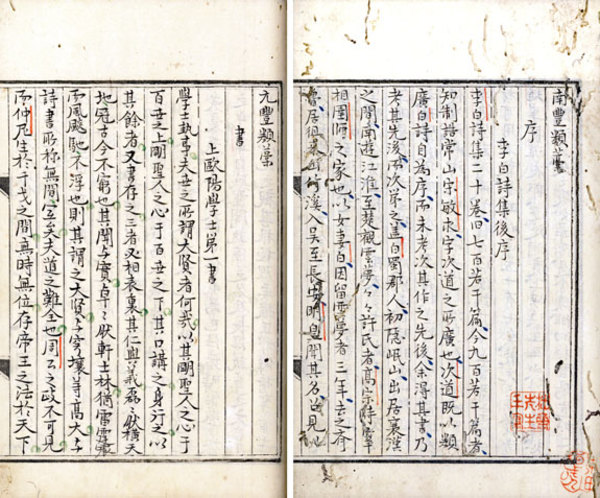 南豐類藁
序
李白詩集後序
李白詩集二十卷旧七百若干篇今九百若干篇者
知制誥常山宋敏求字次道之所廣也次道既以類
廣白詩自為序而未考次其作之先後余得其書乃
考其先後而次第之盖白蜀郡人初隠岷山出居襄漢
之間南遊江淮至楚觀雲夢々々許氏者高宗時宰
相圉師之家也以女妻白因留雲夢者三年去之齊
魯居徂萊山竹溪入吳至長安明皇聞其名召見以
元豐類藁
書
上歐陽學士第一書
學士執亊夫世之所謂大賢者何哉以其明聖人之心于
百世之上明聖人之心于百世之下其口講之身行之以
其餘者又書存之三者又相表裏其仁與義磊々然橫天
地冠古今不窮也其聞于實卓々然軒士林猶雷霆震
而風飈馳不浮也則其謂之大賢与穹壤等高大与
詩書所称無間宜矣夫道之難全也周公之政不可見
而仲尼生於千戈之間無時無位存帝王之法於天下